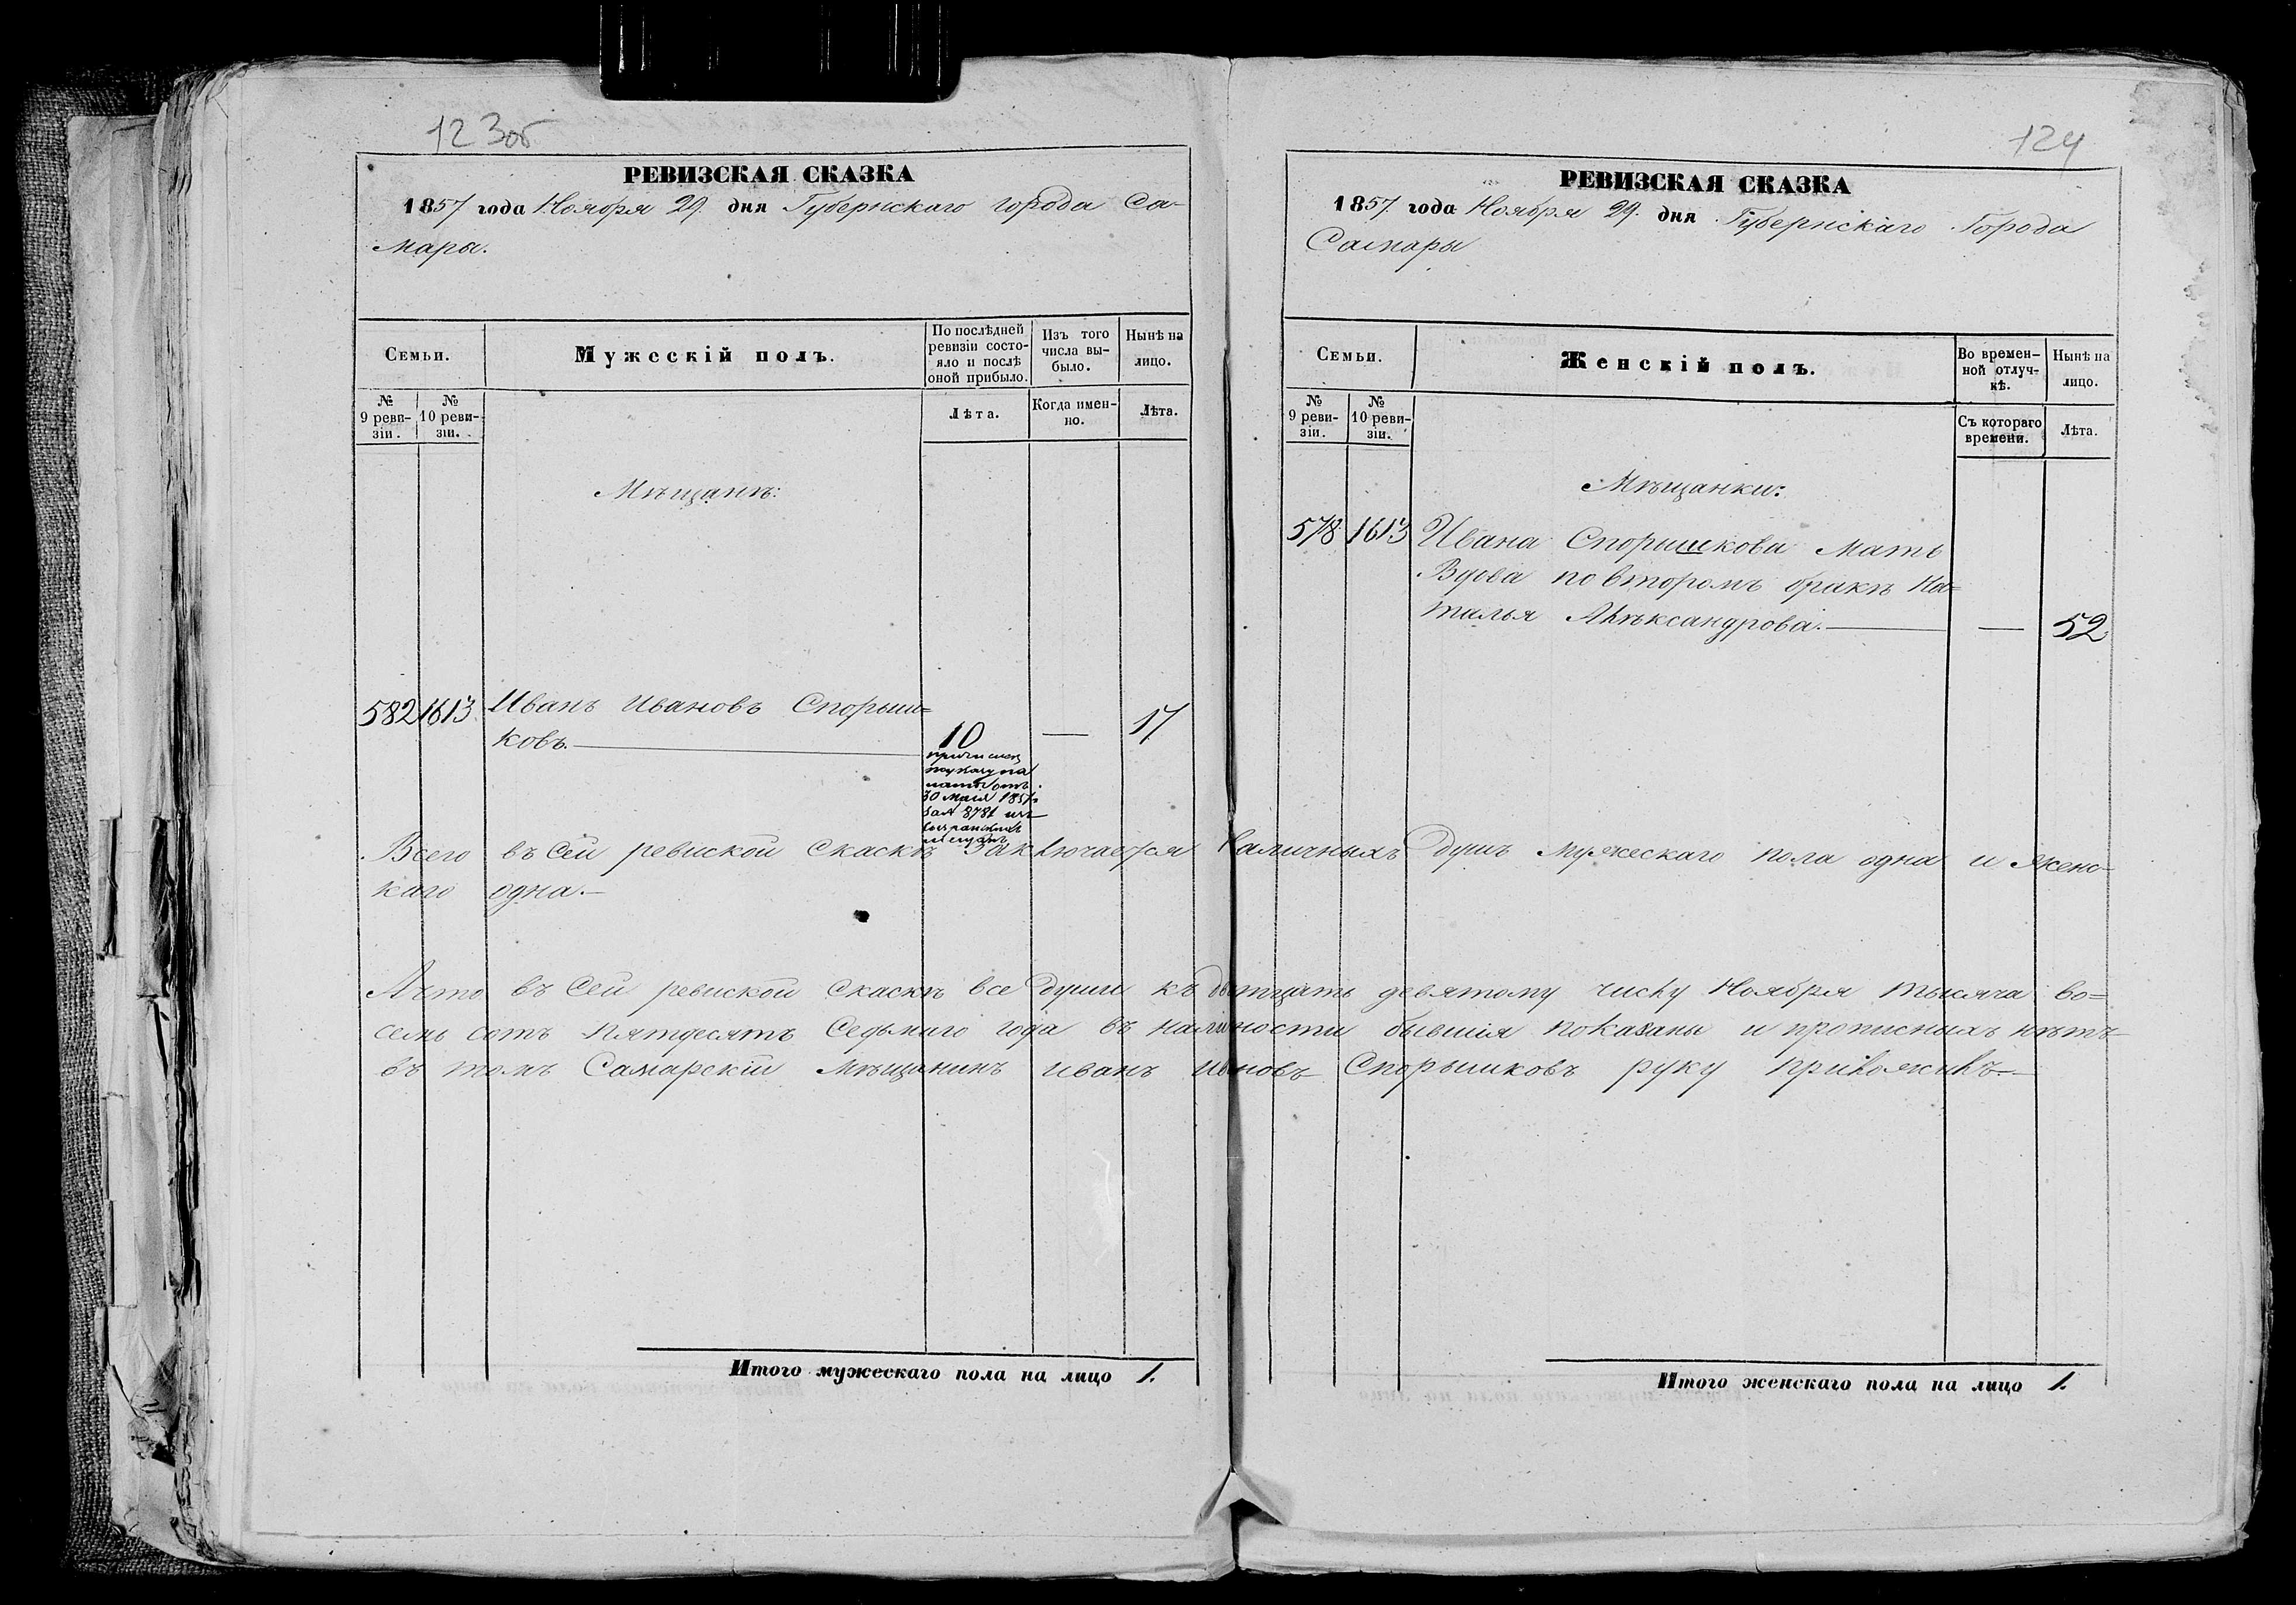 123об
РЕВИЗСКАЯ СКАЗКА
1857 года Ноября 29. дня Губернскаго города Са-
мары.
Семьи.
Мужескій полъ.
По послѣдней
ревизіи состо-
яло и послѣ
оной прибыло.
Изъ того
числа вы-
было.
Нынѣ на
лицо.
№
9 реви-
зіи.
№
10 реви-
зіи.
Лѣта.
Когда имен-
но.
Лѣта.
Мѣщанъ:
582 1613 Иванъ Ивановъ Спорыш=
ковъ. 10 — 17
30 мая 1851
за № 8781 изъ
124
РЕВИЗСКАЯ СКАЗКА
1857 года Ноября 29. дня Губернскаго Города
Самары
Семьи.
Женскій полъ.
Во времен-
ной отлуч-
кѣ.
Нынѣ на
лицо.
№
9 реви-
зіи.
№
10 реви-
зіи.
Съ котораго
времени.
Лѣта.
Мѣщанки:
578 1613 Ивана Спорышкова Мать
Вдова по второмъ бракѣ На=
талья Алѣксандрова. — 52
Всего въ Сей ревиской Скаскѣ Заключается Наличныхъ душъ мужескаго пола одна и женс-
каго одна.—
Ачто въ Сей ревиской Скаскѣ все души къ дватцать девятому числу Ноября тысяча во=
семь сотъ пятдесятъ Седьмого года въ наличности бывшія показаны и прописныхъ нѣтъ
въ томъ Самарскій Мѣщанинъ иванъ ивановъ Спорышковъ руку приложилъ.—
Итого мужескаго пола на лицо 1.
Итого женскаго пола на лицо 1.